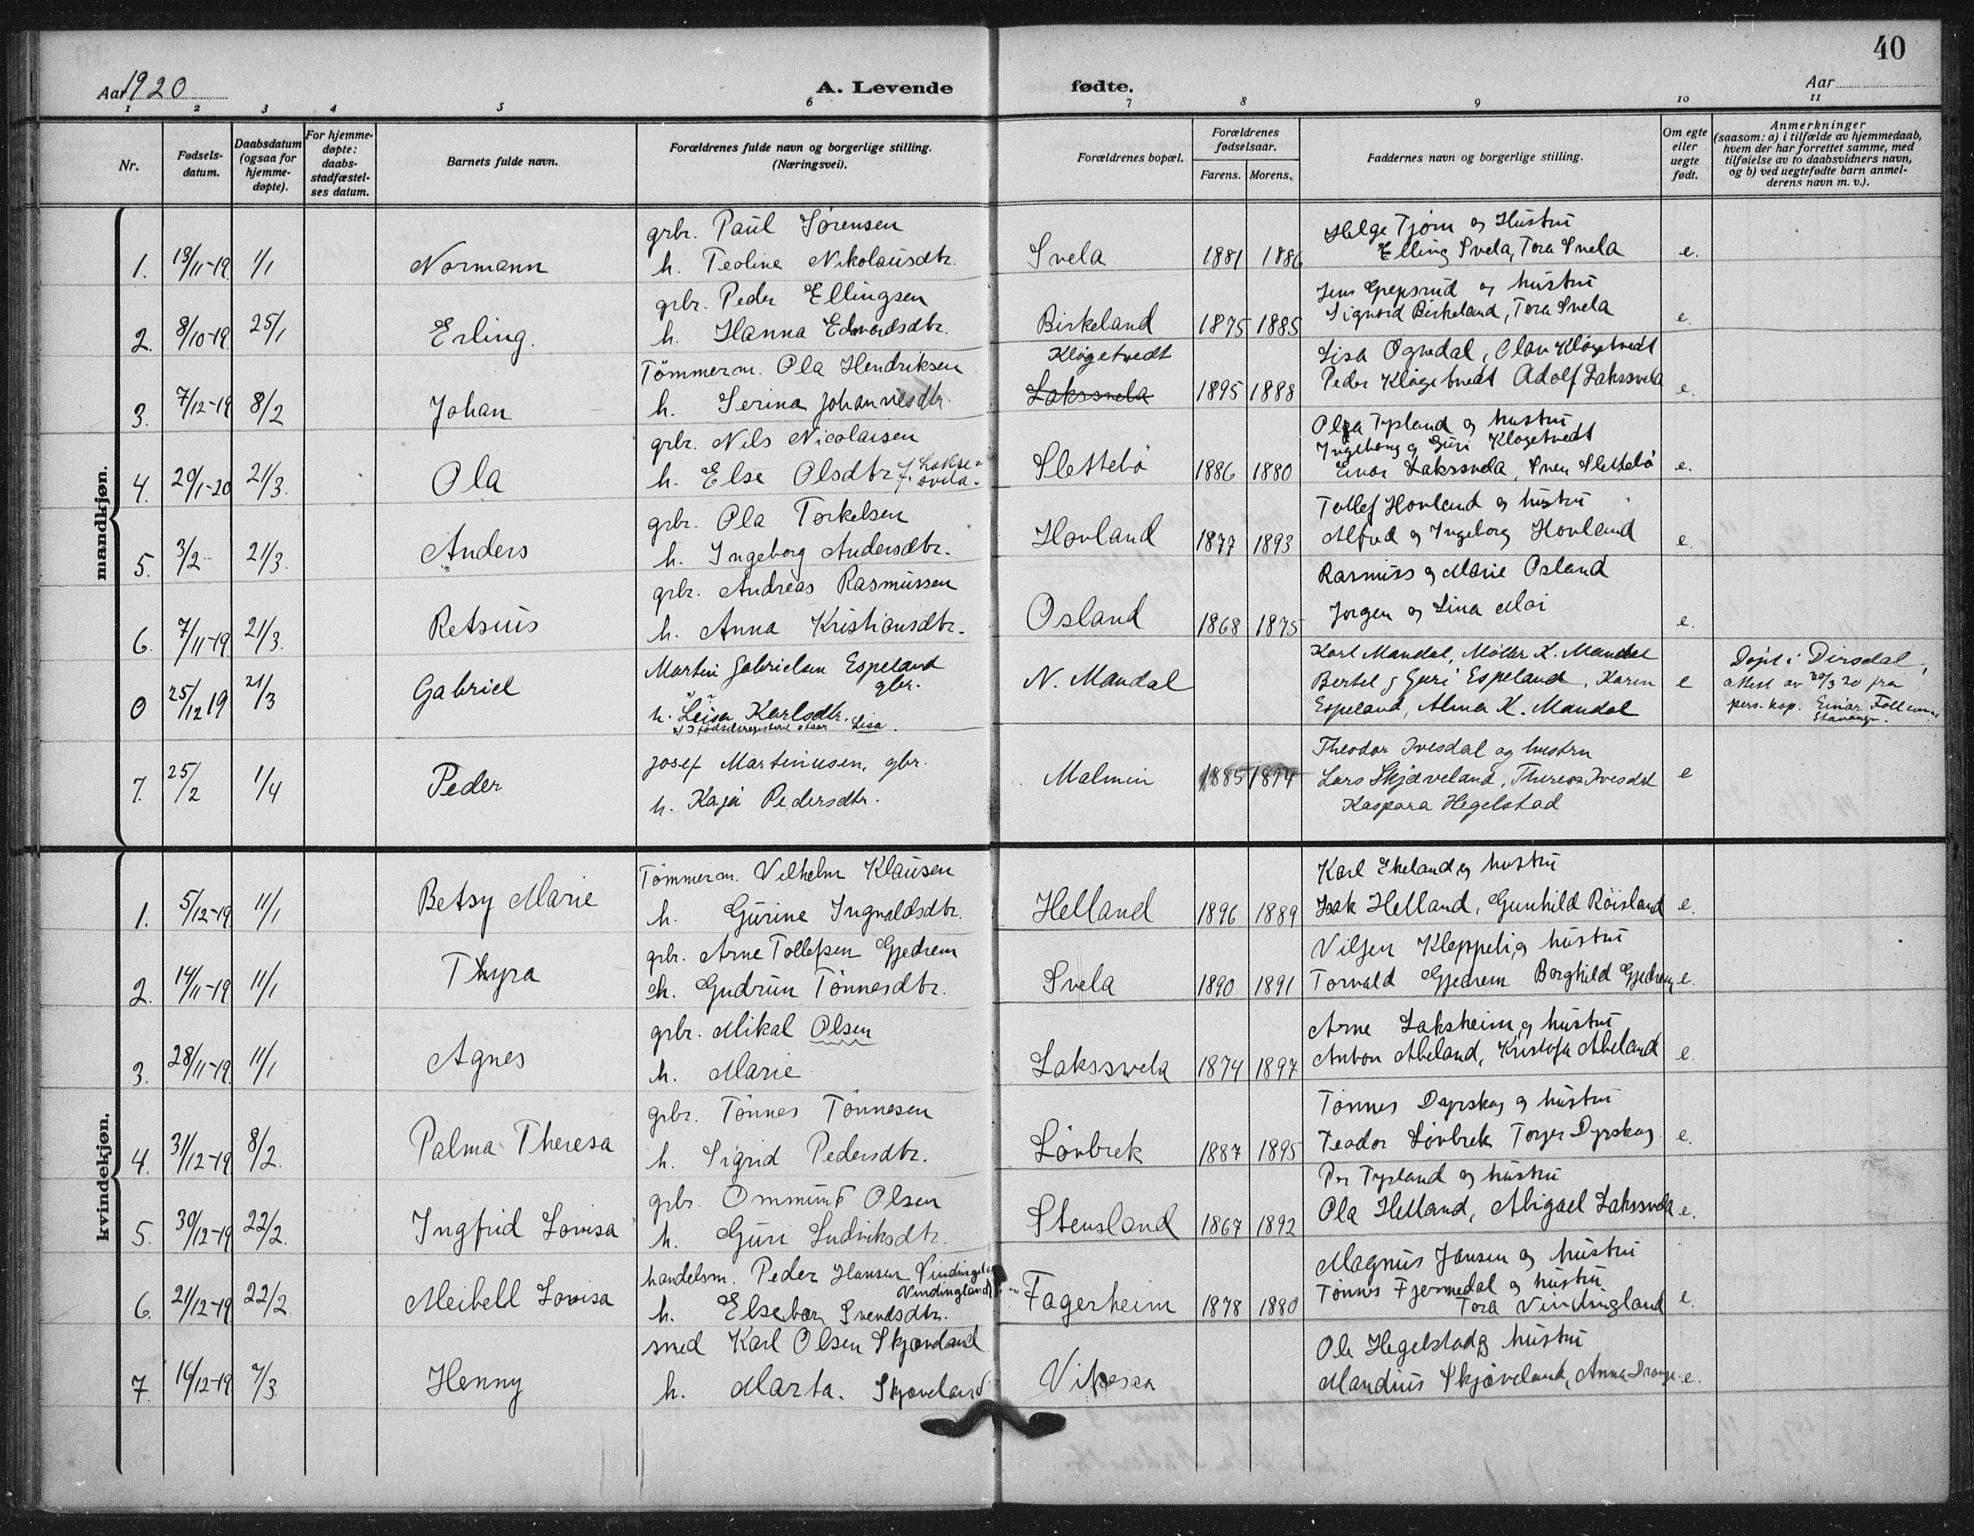 40
Aar 1920
A. Levende fødte.
Aar
1 2 3 4 5 6 7 8 9 10 11
Nr.
Fødsels-
datum.
Daabsdatum
(ogsaa for
hjemme-
døpte).
For hjemme-
døpte:
daabs-
stadfæstel-
ses datum.
Barnets fulde navn.
Forældrenes fulde navn og borgerlige stilling.
(Næringsvei).
Forældrenes bopæl.
Forældrenes
fødselsaar.
Farens. Morens.
Faddernes navn og borgerlige stilling.
Om egte
eller
uegte
født.
Anmerkninger
(saasom: a) i tilfælde av hjemmedaab,
hvem der har forrettet samme, med
tilføielse av to daabsvidners navn,
og b) ved uegtefødte barn anmel-
derens navn m. v.).
mandkjøn.
grbr. Paul Sørensen
Helge Tjørn og Hustru
1. 13/11-19 1/1 Normann h. Teoline Nikolausdtr. Svela 1881 1886 Elling Svela, Tora Svela e.
grbr. Peder Ellingsen
Jens og hustru
2. 8/10-19 25/1 Erling. h. Hanna Edvardsdtr. Birkeland 1875 1885 Sigvard Birkeland, Tora Svela e.
Tømmerm. Ola Hendriksen
Kløgetvedt
Lisa Ognedal, Olav Kløgetvedt
3. 7/12-19 8/2 Johan h. Serina Johannesdtr Lakssvela 1895 1888 Peder Kløgetvedt Adolf Lakssvela e.
grbr. Nils Nicolaisen
Olga Tysland og hustru
Ingeborg og Guri Kløgetvedt
4. 20/1-20 21/3. Ola h. Else Olsdtr f. Lakse-
svela. Slettebø 1886 1880 Einar Lakssvela, Sven Slettebø e.
grbr. Ola Torkelsen
Tollef Hovland og hustru
5. 3/2 21/3. Anders h. Ingeborg Andersdtr. Hovland 1877 1893 Alfred og Ingeborg Hovland e.
grbr. Andreas Rasmussen
Rasmus og Marie Osland
6. 7/11-19 21/3. Retsius h. Anna Kristiansdtr. Osland 1868 1875 Jørgen og Lina Moi e.
Martin Gabrielsen Espeland
gbr.
Karl Mandal, Møller K. Mandal
Døpt i Dirsdal,
0 25/12 19 21/3 Gabriel N. Mandal Bertel og Guri Espeland, Karen e attest av 20/3 20 fra
h. Leisa Karlsdtr.
x) I fødselsregisteret staar Lisa.
Espeland, Alma K. Mandal
pers. kap. Einar
Stavanger.
Josef Martinusen, gbr.
Theodor Ivesdal og hustru
7. 25/2 1/4 Peder h. Kaja Pedersdtr. Malmin 1885 1894 Lars Skjæveland, Theresa Ivesdal e
Kaspara Hegelstad
kvindekjøn.
Tømmerm. Vilhelm Klausen
Karl Ekeland og hustru
1. 5/12-19 11/1 Betsy Marie h. Gurine Ingvaldsdtr. Helland 1896 1889 Isak Helland, Gunhild Røisland e.
grbr. Arne Tollefsen Gjedrem
Kleppeli og hustru
2. 14/11-19 11/1 Thyra h. Gudrun Tønnesdtr. Svela 1890 1891 Torvald Gjedrem Borghild Gjedrem e.
grbr. Mikal Olsen
Arne Laksheim og hustru
3. 28/11-19 11/1 Agnes h. Marie Lakssvela 1874 1897 Anton Abeland, Kristofa Abeland e.
grbr. Tønnes Tønnesen
Tønnes Dyrskog og hustru
4. 31/12-19 8/2. Palma Theresa h. Sigrid Pedersdtr. Løvbrek 1887 1895 Teodor Løvbrek Torger Dyrskog. e.
grbr. Ommund Olsen
Per Tysland og hustru
5. 30/12-19 22/2. Ingfrid Lovisa h. Guri Ludviksdtr. Stensland 1867 1892 Ola Helland, Abigael Lakssvela e.
handelsm. Peder Hansen
Vindingland
Magnus Jansen og hustru
Tønnes Fjermedal og hustru
6. 21/12-19 22/2. Meibell Lovisa h. Elsebær Svendsdtr. Fagerheim 1878 1880 Tora Vindingland e.
smed Karl Olsen Skjæveland
Ole Hegelstad og hustru
7. 16/12-19 7/3. Henny h. Marta. Skjæveland Vikesaa Mandius Skjæveland, Anna e.